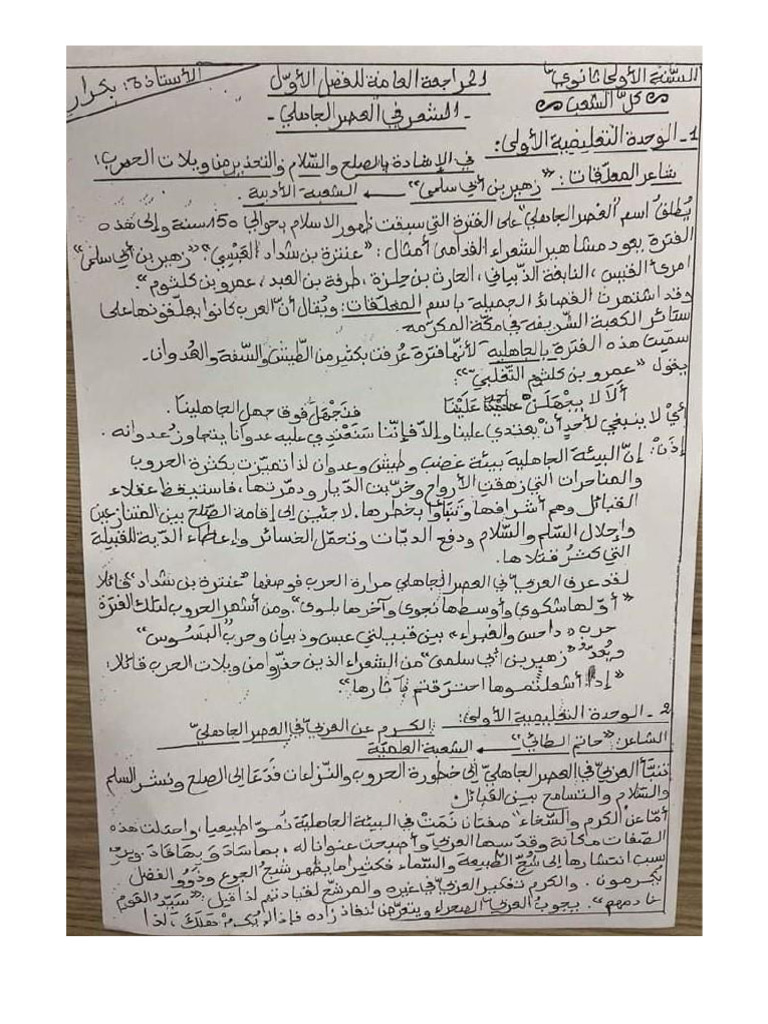 السّنة الأولى ثانوي
المراجعة العامة للفصل الأوّل
الأستاذة: بكرار
كلّ الشعب
- الشعر في العصر الجاهلي -
1- الوحدة التعليمية الأولى:
في الإشادة بالصلح والسّلام والتحذير من ويلات الحرب:
شاعر المعلّقات: "زهير بن أبي سلمى" ← الشعبة الأدبية.
يُطلقُ اسم "العصر الجاهلي" على الفترة التي سبقت ظهور الاسلام بحوالي 150 سنة وإلى هذه
الفترة يعود مشاهير الشعراء القدامى أمثال: "عنترة بن شداد العَبْسِي" "زهير بن أبي سلمى"
امرئ القيس، النابغة الذّبياني، الحارث بن حِلِزة، طرفة بن العبد، عمرو بن كلثوم".
وقد اشتهرت القصائد الجميلة باسم المعلّقات: ويُقال أنّ العرب كانوا يعلّقونها على
ستائر الكعبة الشّريفة في مكّة المكرّمة.
سمّيت هذه الفترة بالجاهلية لأنّها فترة عُرفت بكثير من الطّيش والسّفه والعُدوان.
يقول "عمرو بن كلثوم التّغلبيّ":
ألَا لا يجْهَلَنْ أحد عَلَيْنَا فنَجْهَلَ فوق جهل الجاهلينا.
أيْ لا ينبغي لأحدٍ أنْ يعتدي علينا وإلاّ فإنّنا سَنَعْتَدِي عليه عدوانا يتجاوز عُدوانه.
إذَنْ: إنّ البيئة الجاهلية بيئة غضب وطيش وعدوان لذا تميّزت بكثرة الحروب
والمناحرات التي زهقت الأرواح وخرّبت الدّيار ودمّرتها، فاستيقظ عقلاء
القبائل وهم أشرافها وتنبّأوا بخطرها. لاجئين إلى إقامة الصّلح بين المتنازعين
وإحلال السّلم والسّلام ودفع الديّات وتحمّل الخسائر وإعطاء الدّية للقبيلة
التي كثُر قتلاها.
لقد عرف العربيّ في العصر الجاهلي مرارة الحرب فوصفها "عنترة بن شداد" قائلا
"أوّلها شكوى وأوسطها نجوى وآخرها بلوى". ومن أشهر الحروب لتلك الفترة
حرب "داحس والغبراء" بين قبيلتي عبس وذبيان وحرب "البَسُوس"
ويُعدّ "زهير بن أبي سلمى" من الشعراء الذين حذّروا من ويلات الحرب قائلا:
"إذا أشعلتموها احترقتم بآثارها".
2- الوحدة التعليمية الأولى: الكرم عن العربيّ في العصر الجاهليّ
الشاعر: "حاتم الطائي" ← الشعبة العلميّة
تنبّأ العربيّ في العصر الجاهليّ إلى خطورة الحروب والنّزاعات فَدَعَا إلى الصلح ونشر السلم
والسّلام والتسامح بين القبائل.
أمّا عن "الكرم والسّخاء" صفتان نَمَتْ في البيئة الجاهليّة نُموّا طبيعيا، واحتلت هذه
الصّفات مكانة وقدّسها العربيّ وأصبحت عنوانا له، بها سَادَ وَبها قَادَ
سبب انتشارها إلى شُحّ الطّبيعة والسّماء فكثيرا ما يظهر شبح الجوع وذَوُو الفضل
يُكرمون. والكرم تفكير العربيّ في غيره والمرشّح لقيادتهم لذا قيل: "سَيّدُ القَوْمِ
خادمهم". يجوبُ العربيّ الصحراء ويتعرّض لنفاذ زاده فإذا لم يُكرمْ هَلَكَ، لذا